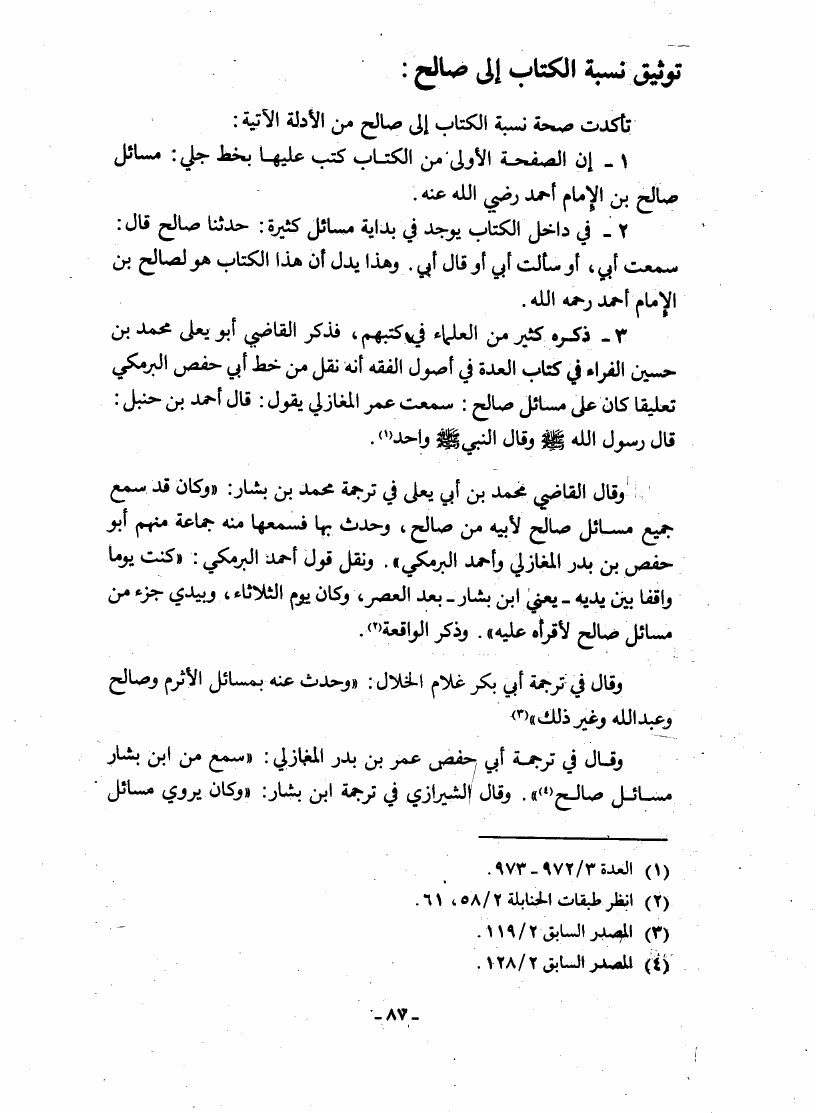 توثيق نسبة الكتاب إلى صالح :
تأكدت صحة نسبة الكتاب إلى صالح من الأدلة الآتية :
١ - إن الصفحة الأولى من الكتاب كتب عليها بخط جلي : مسائل
صالح بن الإمام أحمد رضي الله عنه .
٢ - في داخل الكتاب يوجد في بداية مسائل كثيرة : حدثنا صالح قال :
سمعت أبي ، أو سألت أبي أو قال أبي . وهذا يدل أن هذا الكتاب هو لصالح بن
الإمام أحمد رحمه الله .
٣ - ذكره كثير من العلماء في كتبهم ، فذكر القاضي أبو يعلى محمد بن
حسين الفراء في كتاب العدة في أصول الفقه أنه نقل من خط أبي حفص البرمكي
تعليقا كان على مسائل صالح : سمعت عمر المغازلي يقول : قال أحمد بن حنبل :
قال رسول الله ﷺ وقال النبي ﷺ واحد(١) .
وقال القاضي محمد بن أبي يعلى في ترجمة محمد بن بشار : «وكان قد سمع
جميع مسائل صالح لأبيه من صالح ، وحدث بها فسمعها منه جماعة منهم أبو
حفص بن بدر المغازلي وأحمد البرمكي» . ونقل قول أحمد البرمكي : «كنت يوما
واقفا بين يديه - يعني ابن بشار - بعد العصر ، وكان يوم الثلاثاء ، وبيدي جزء من
مسائل صالح لأقرأه عليه» . وذكر الواقعة(٢) .
وقال في ترجمة أبي بكر غلام الخلال : «وحدث عنه بمسائل الأثرم وصالح
وعبدالله وغير ذلك»(٣)
وقال في ترجمة أبي حفص عمر بن بدر المغازلي : «سمع من ابن بشار
مسائل صالح(٤)» . وقال الشيرازي في ترجمة ابن بشار : «وكان يروي مسائل
(١) العدة ٩٧٢/٣ - ٩٧٣ .
(٢) انظر طبقات الحنابلة ٥٨/٢ ، ٦١ .
(٣) المصدر السابق ١١٩/٢ .
(٤) المصدر السابق ١٢٨/٢ .
- ٨٧ -